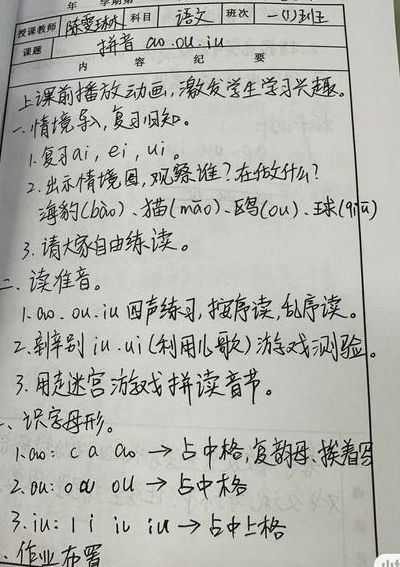 年 学期第
授课教师 陈雯琳 科目 语文 班次 一(1)班
课题 拼音 ao.ou.iu
内 容 纪 要
上课前播放动画,激发学生学习兴趣。
一、情境导入,复习旧知。
1.复习ai,ei,ui。
2.出示情境图,观察谁?在做什么?
海豹(bào)、猫(māo)、鸥(ōu)、球(qiú)
3.请大家自由练读。
二、读准音。
1.ao.ou.iu 四声练习,按序读,乱序读。
2.辨别iu.ui(利用儿歌)游戏测验。
3.用走迷宫游戏拼读音节。
、识字母形。
1.ao: c a ao → 占中格,复韵母,挨着写
2.ou: o ou ou → 占中格
3.iu: l i iu iu → 占中上格
、作业布置